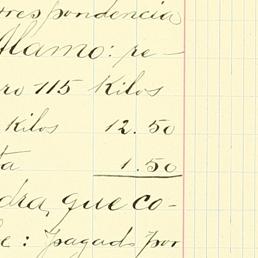 rrespondencia
Alamo: re-
ro 115 Kilos
Kilos 12.50
ta 1.50
dra, que co-
e: pagado por